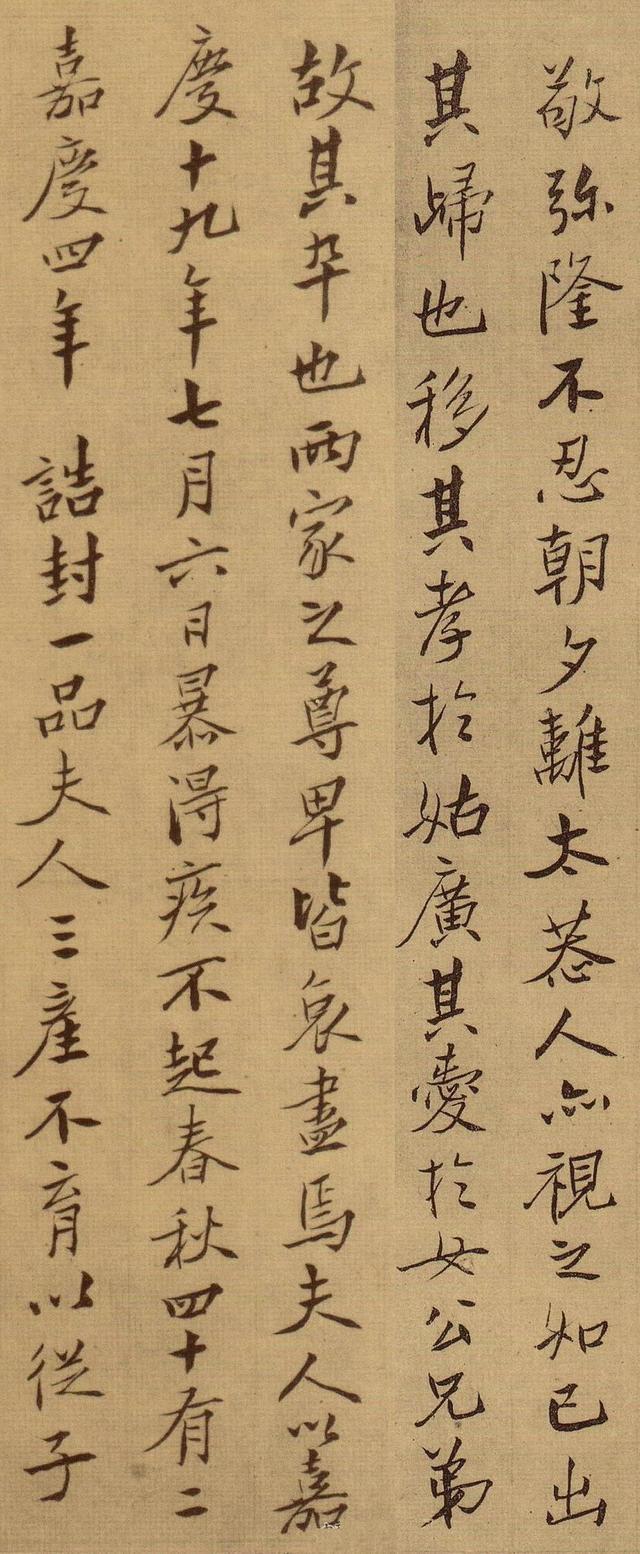 敬弥隆不忍朝夕離太恭人亦視之如己出
其歸也移其孝於姑廣其愛於女公兄弟
故其卒也兩家之尊卑皆哀盡焉夫人以嘉
慶十九年七月六日暴得疾不起春秋四十有二
嘉慶四年 誥封一品夫人三產不育以從子